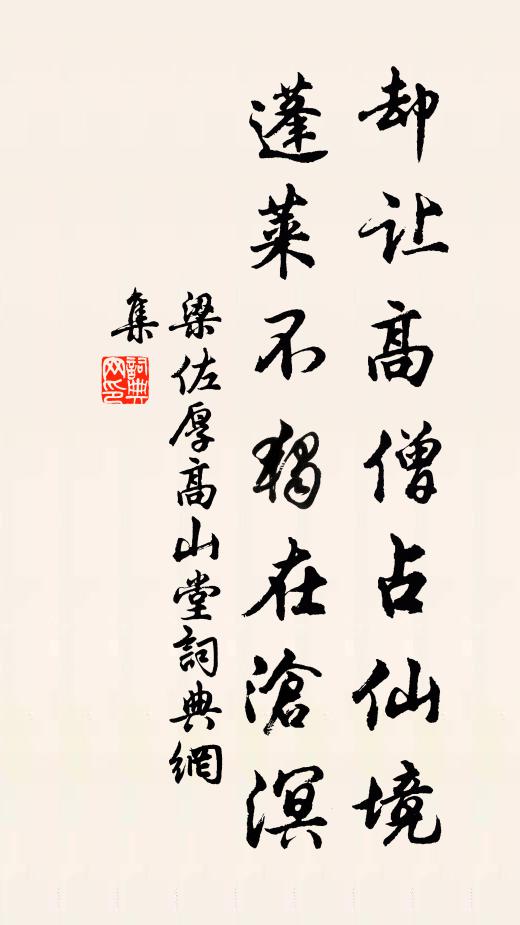 却让高僧占仙境
蓬莱不独在滄溟
梁佐厚高山堂詞典網
集
詞典
网印